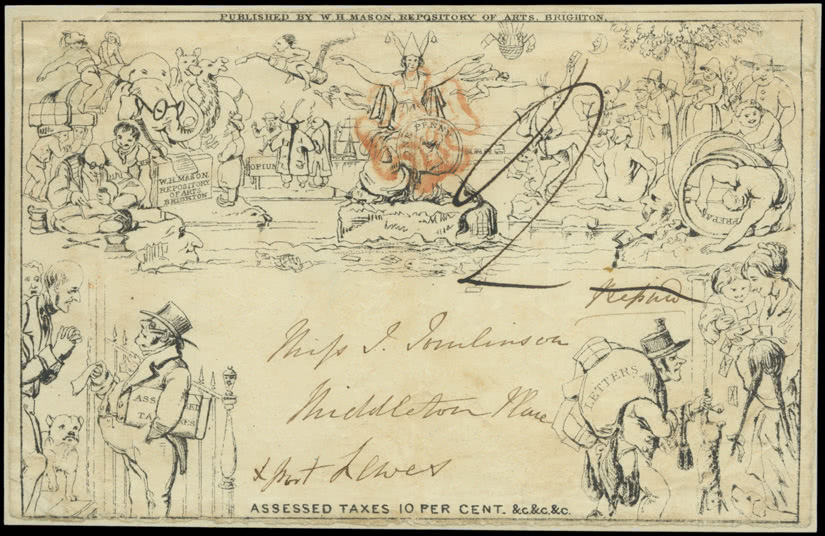 PUBLISHED BY W.H. MASON, REPOSITORY OF ARTS, BRIGHTON.
PENNY
OPIUM
W.H. MASON
REPOSITORY
OF ARTS
BRIGHTON
PREPAI
2
Prepaid
Miss J. Tomlinson
Middleton Place
Lewes
LETTERS
ASS ED
TA XES
ASSESSED TAXES 10 PER CENT. &c.&c.&c.